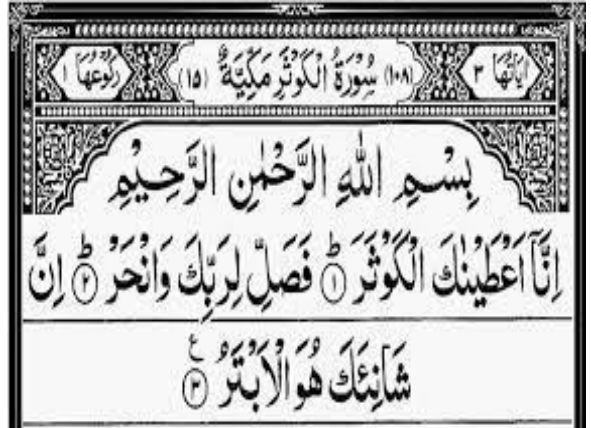 اٰيَاتُهَا ٣ (١٠٨) سُوْرَةُ الْكَوْثَرِ مَكِّيَّةٌ (١٥) رُكُوْعُهَا ١
بِسْمِ اللّٰهِ الرَّحْمٰنِ الرَّحِيْمِ
اِنَّاۤ اَعْطَيْنٰكَ الْكَوْثَرَ ؕ ۝١ فَصَلِّ لِرَبِّكَ وَانْحَرْ ؕ ۝٢ اِنَّ
شَانِئَكَ هُوَ الْاَبْتَرُ ۝٣ ع